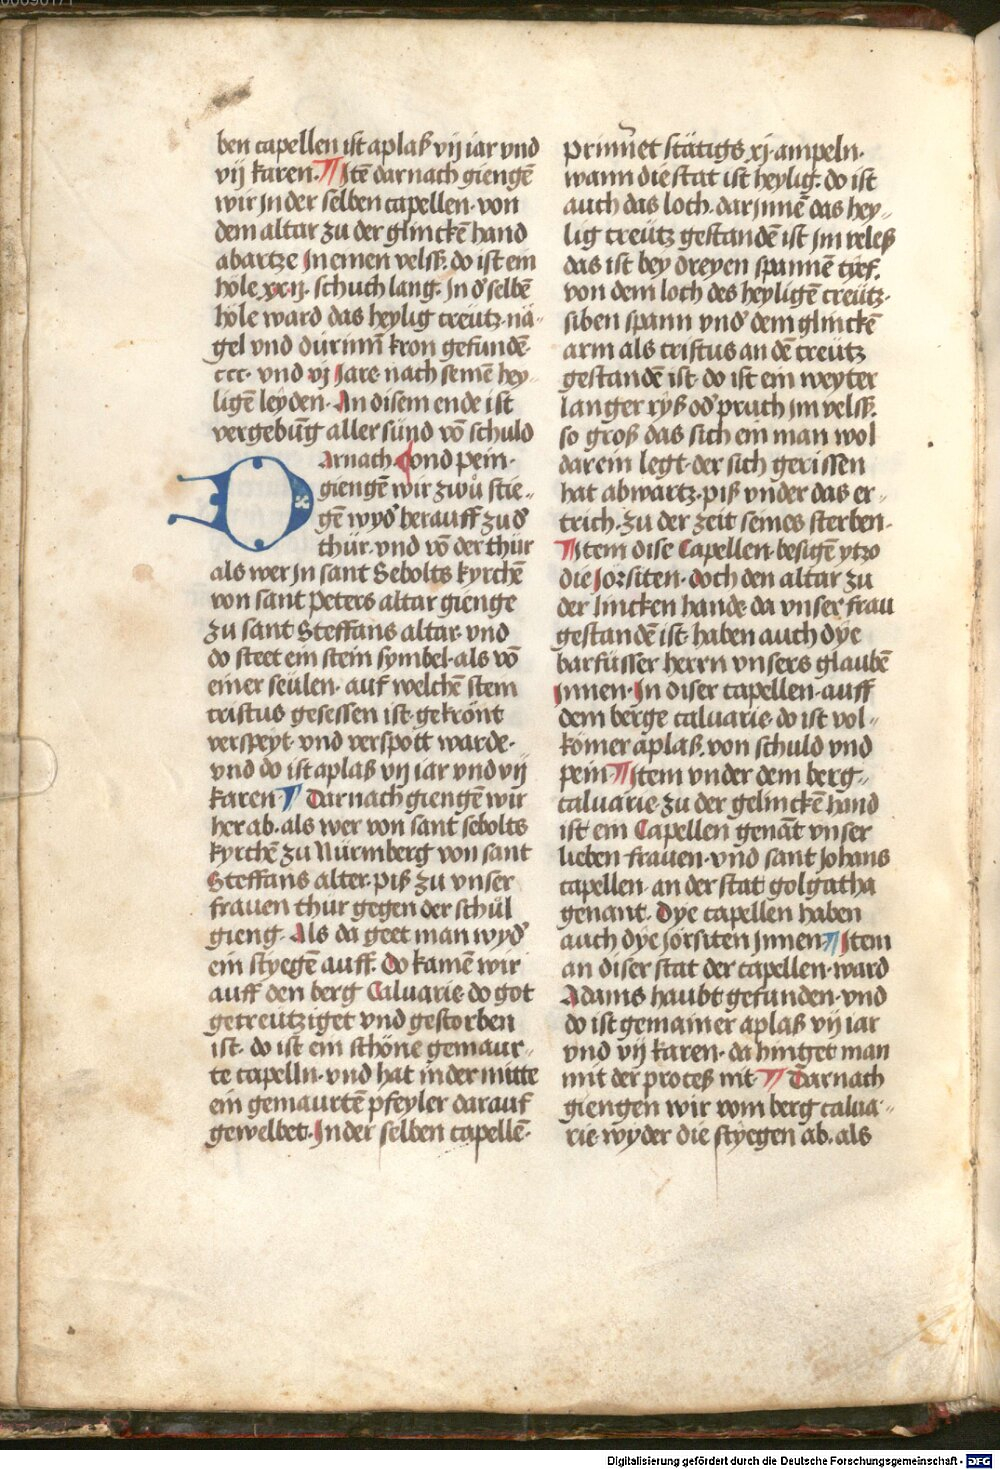 ben capellen ist aplaß vij iar vnd
vij karen. ¶ Itē darnach giengē
wir jn der selben capellen von
dem altar zu der glinckē hand
abartze Jn einen velsß. do ist ein
höle xxij. schuch lang. Jn d' selbē
höle ward das heylig creütz nä-
gel vnd dürnin̄ kron gefundē
ccc. vnd vj Jare nach seinē hey-
ligē leyden. An disem ende ist
vergebūg aller sünd vō schuld
vnd pein.
Darnach
giengē wir zwů stie-
gē wyd' herauff zu d'
thür. vnd vō der thür
als wer jn sant Sebolts kyrchē
von sant peters altar gienge
zu sant Steffans altar. vnd
do steet ein stein symbel als vō
einer seülen. auf welchē stein
cristus gesessen ist gekrönt
verspeyt vnd verspott warde.
vnd do ist aplaß vij iar vnd vij
karen ¶ Darnach giengē wir
her ab. als wer von sant sebolts
kyrchē zu Nürmberg von sant
Steffans alter. piß zu vnser
frauen thur gegen der schůl
gieng. Als da geet man wyd'
ein styegē auff. Do kamē wir
auff den berg Caluarie do got
gecreutziget vnd gestorben
ist. do ist ein schöne gemaur-
te capelln. vnd hat in der mitte
ein gemaurtē pfeyler darauf
gewelbet. Jn der selben capellē
prinnet stätigs xj. ampeln.
wann die stat ist heylig. do ist
auch das loch. dar jnnē das hey-
lig creütz gestandē ist im veleß
das ist bey dreyen spannē tyef.
von dem loch des heyligē creütz.
siben spann vnd' dem glinckē
arm als cristus an dē creütz
gestandē ist. do ist ein weyter
langer ryß od' pruch im velsß.
so groß das sich ein man wol
darein legt. der sich gerissen
hat abwartz. piß vnder das er-
trich. zu der zeit seines sterben.
¶ Item dise Capellen. besigē ytzo
die Jorsiten. doch den altar zu
der lincken hande da vnser frau
gestandē ist. haben auch dye
barfüsser herrn vnsers glaubē
jnnen. Jn diser capellen. auff
dem berge caluarie. do ist vol-
komer aplaß. von schuld vnd
pein ¶ Item vnder dem berg
caluarie. zu der gelinckē hand
ist ein Capellen genāt vnser
lieben frauen. vnd sant johans
capellen. an der stat golgatha
genant. Dye capellen haben
auch dye jorsiten jnnen ¶ Item
an diser stat der capellen. ward
Adams haubt gefunden. vnd
do ist gemainer aplaß vij iar
vnd vij karen. da hinget man
mit der proceß nit. ¶ Darnach
giengen wir vom berg calua-
rie. wyder die styegen ab. als
Digitalisierung gefördert durch die Deutsche Forschungsgemeinschaft - DFG